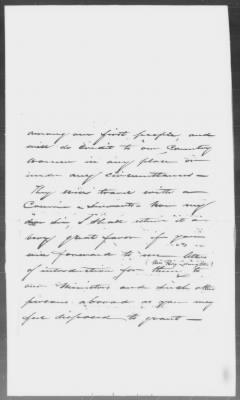 among our first people, and
will do credit to our Country
women in any place or
under any circumstances —
They will travel with a
Courier & Servants. Now my
Sir, I shall esteem it a
very great favor if you
will forward to me letters
of introduction for them to
our Ministers and such other
persons abroad as you may
feel disposed to grant —